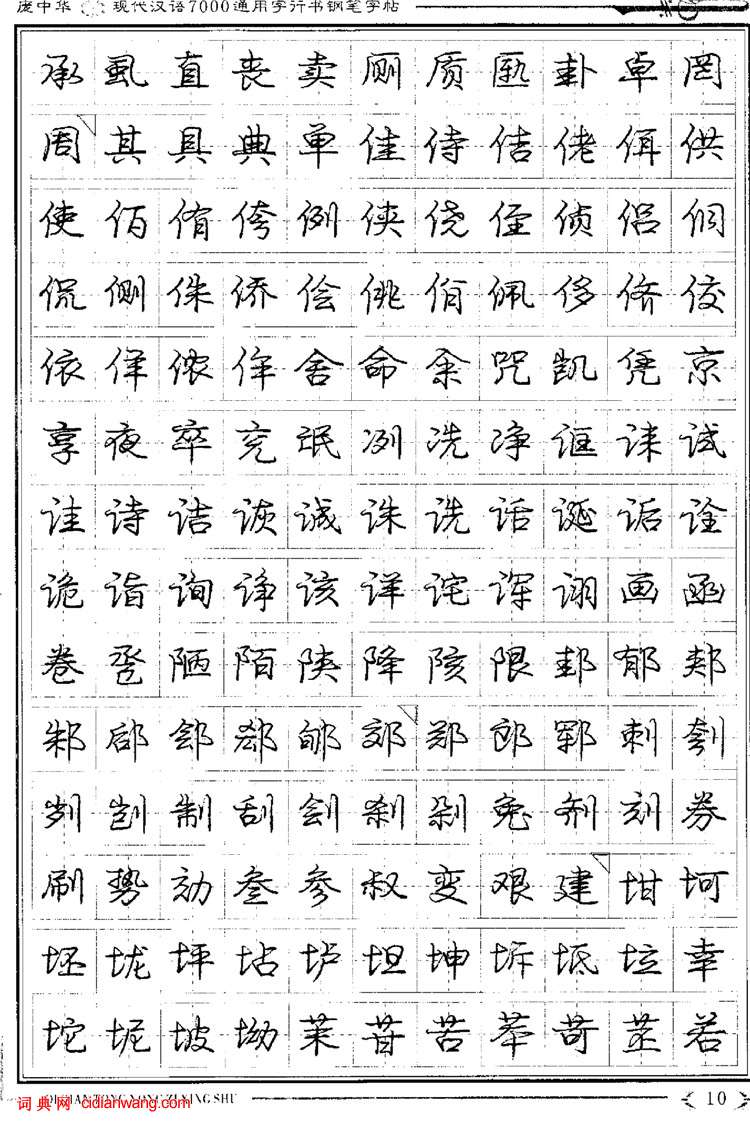 庞中华 现代汉语7000通用字行书钢笔字帖
承虱直丧卖厕质匦卦卓罔
周其具典单佳侍佶佬佴供
使佰侑侉例侠侥侄侦侣侗
侃侧侏侨侩佻佾佩侈侪佼
依佯侬侔舍命余咒凯凭京
享夜卒兖氓冽冼净诓诔试
诖诗诘诙诚诛诜话诞诟诠
诡诣询诤该详诧诨诩画函
卷卺陋陌陕降陔限邽郁郏
邾郈郐郄郇郊郑郎郓刺刳
刿剀制刮刽刹剁兔剂刻券
刷势劾叁参叔变艰建坩坷
坯垅坪坫垆坦坤坼坻垃幸
坨坭坡坳茉苷苦苯苛苤若
词典网 cidianwang.com
10